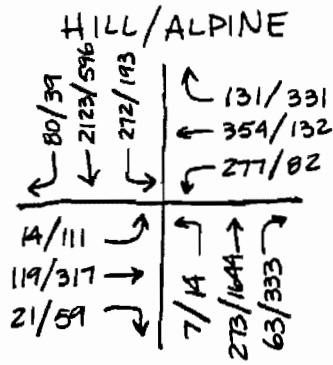 HILL/ALPINE
80/39
2123/596
272/193
131/331
354/132
277/82
14/111
119/317
21/59
7/14
273/1644
63/333